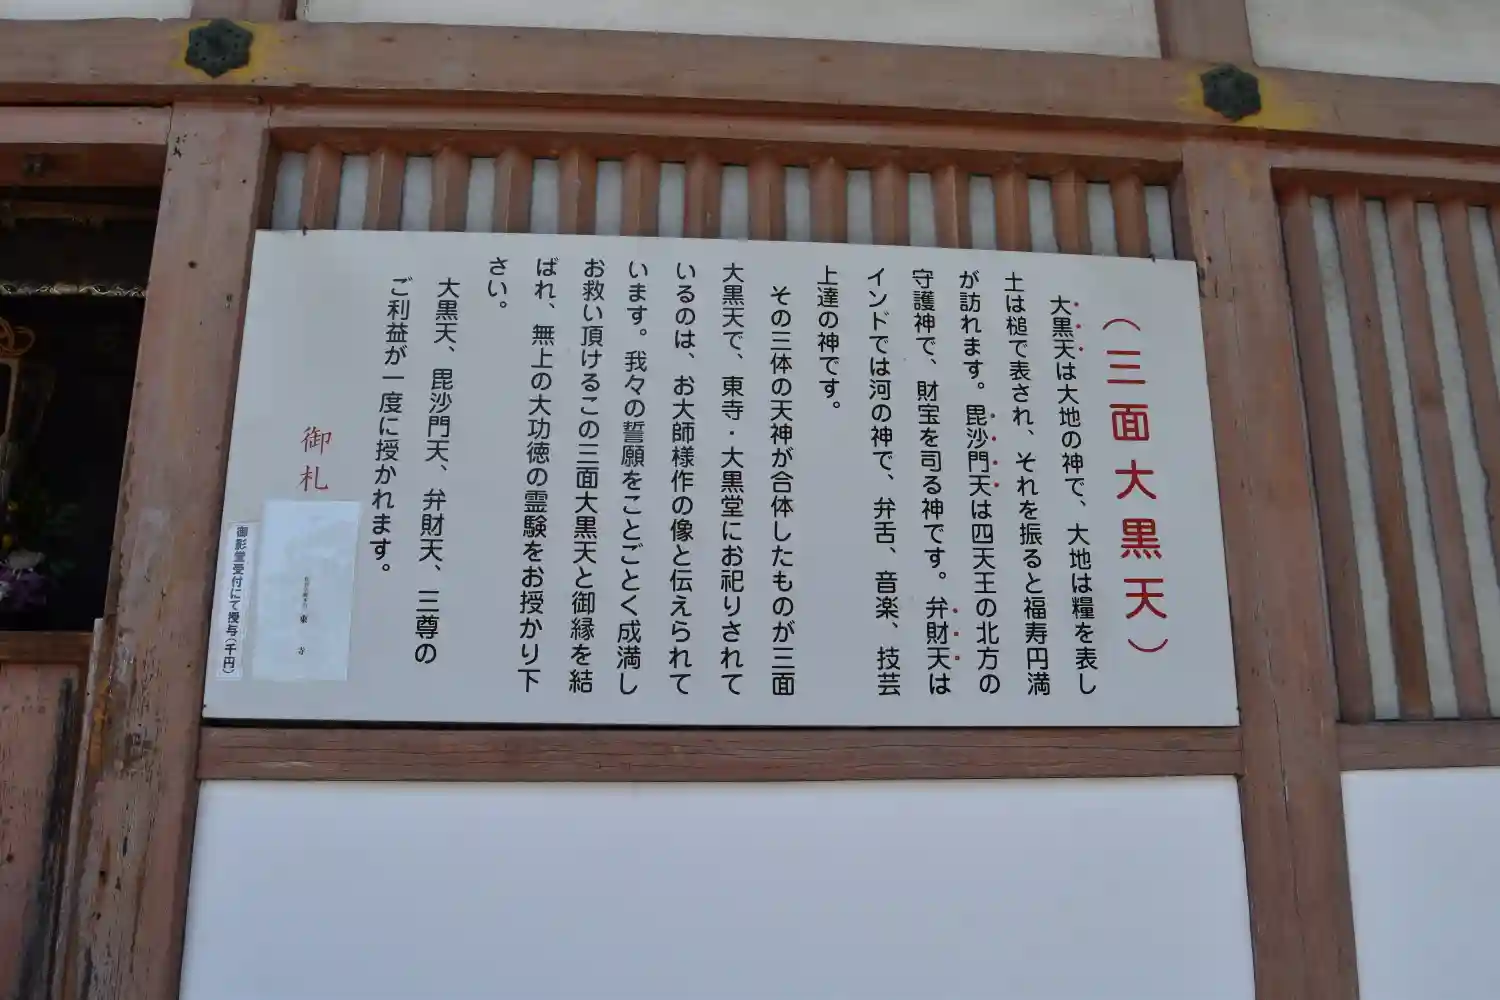 （三面大黒天）
大黒天は大地の神で、大地は糧を表し
土は槌で表され、それを振ると福寿円満
が訪れます。毘沙門天は四天王の北方の
守護神で、財宝を司る神です。弁財天は
インドでは河の神で、弁舌、音楽、技芸
上達の神です。
その三体の天神が合体したものが三面
大黒天で、東寺・大黒堂にお祀りされて
いるのは、お大師様作の像と伝えられて
います。我々の誓願をことごとく成満し
お救い頂けるこの三面大黒天と御縁を結
ばれ、無上の大功徳の霊験をお授かり下
さい。
大黒天、毘沙門天、弁財天、三尊の
ご利益が一度に授かれます。
御札
東寺
御影堂受付にて授与（千円）